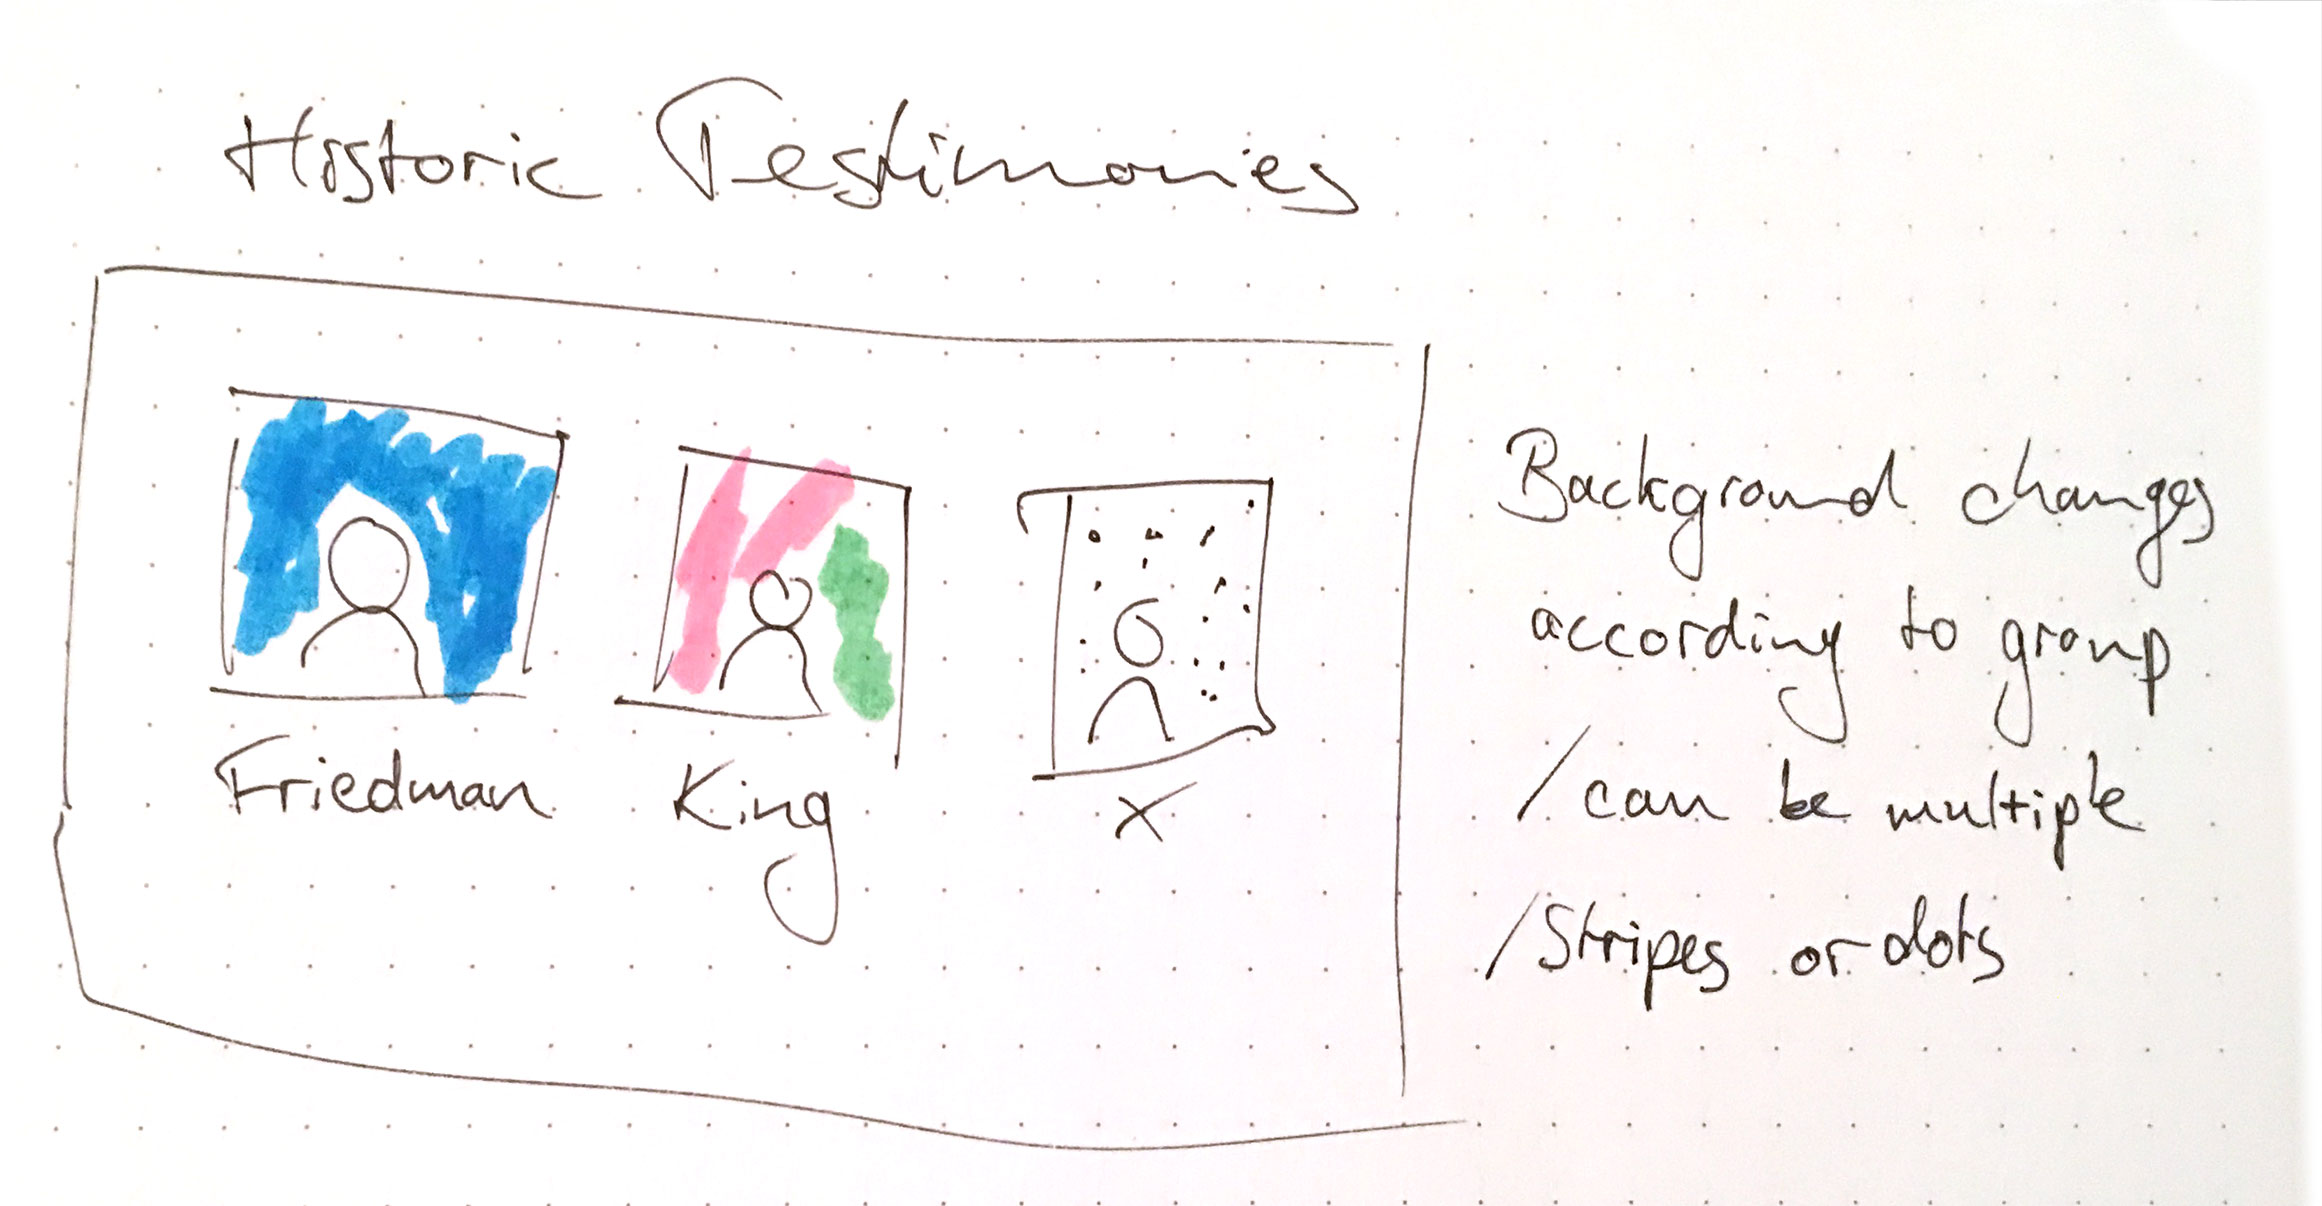 Historic Testimonies
Friedman
King
X
Background changes
according to group
/can be multiple
/Stripes or dots